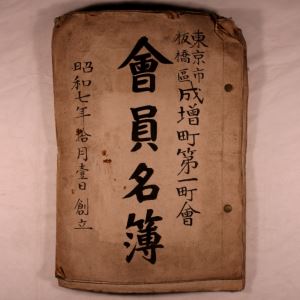 東京市
板橋區
成增町第一町會
會員名簿
昭和七年拾月壹日創立